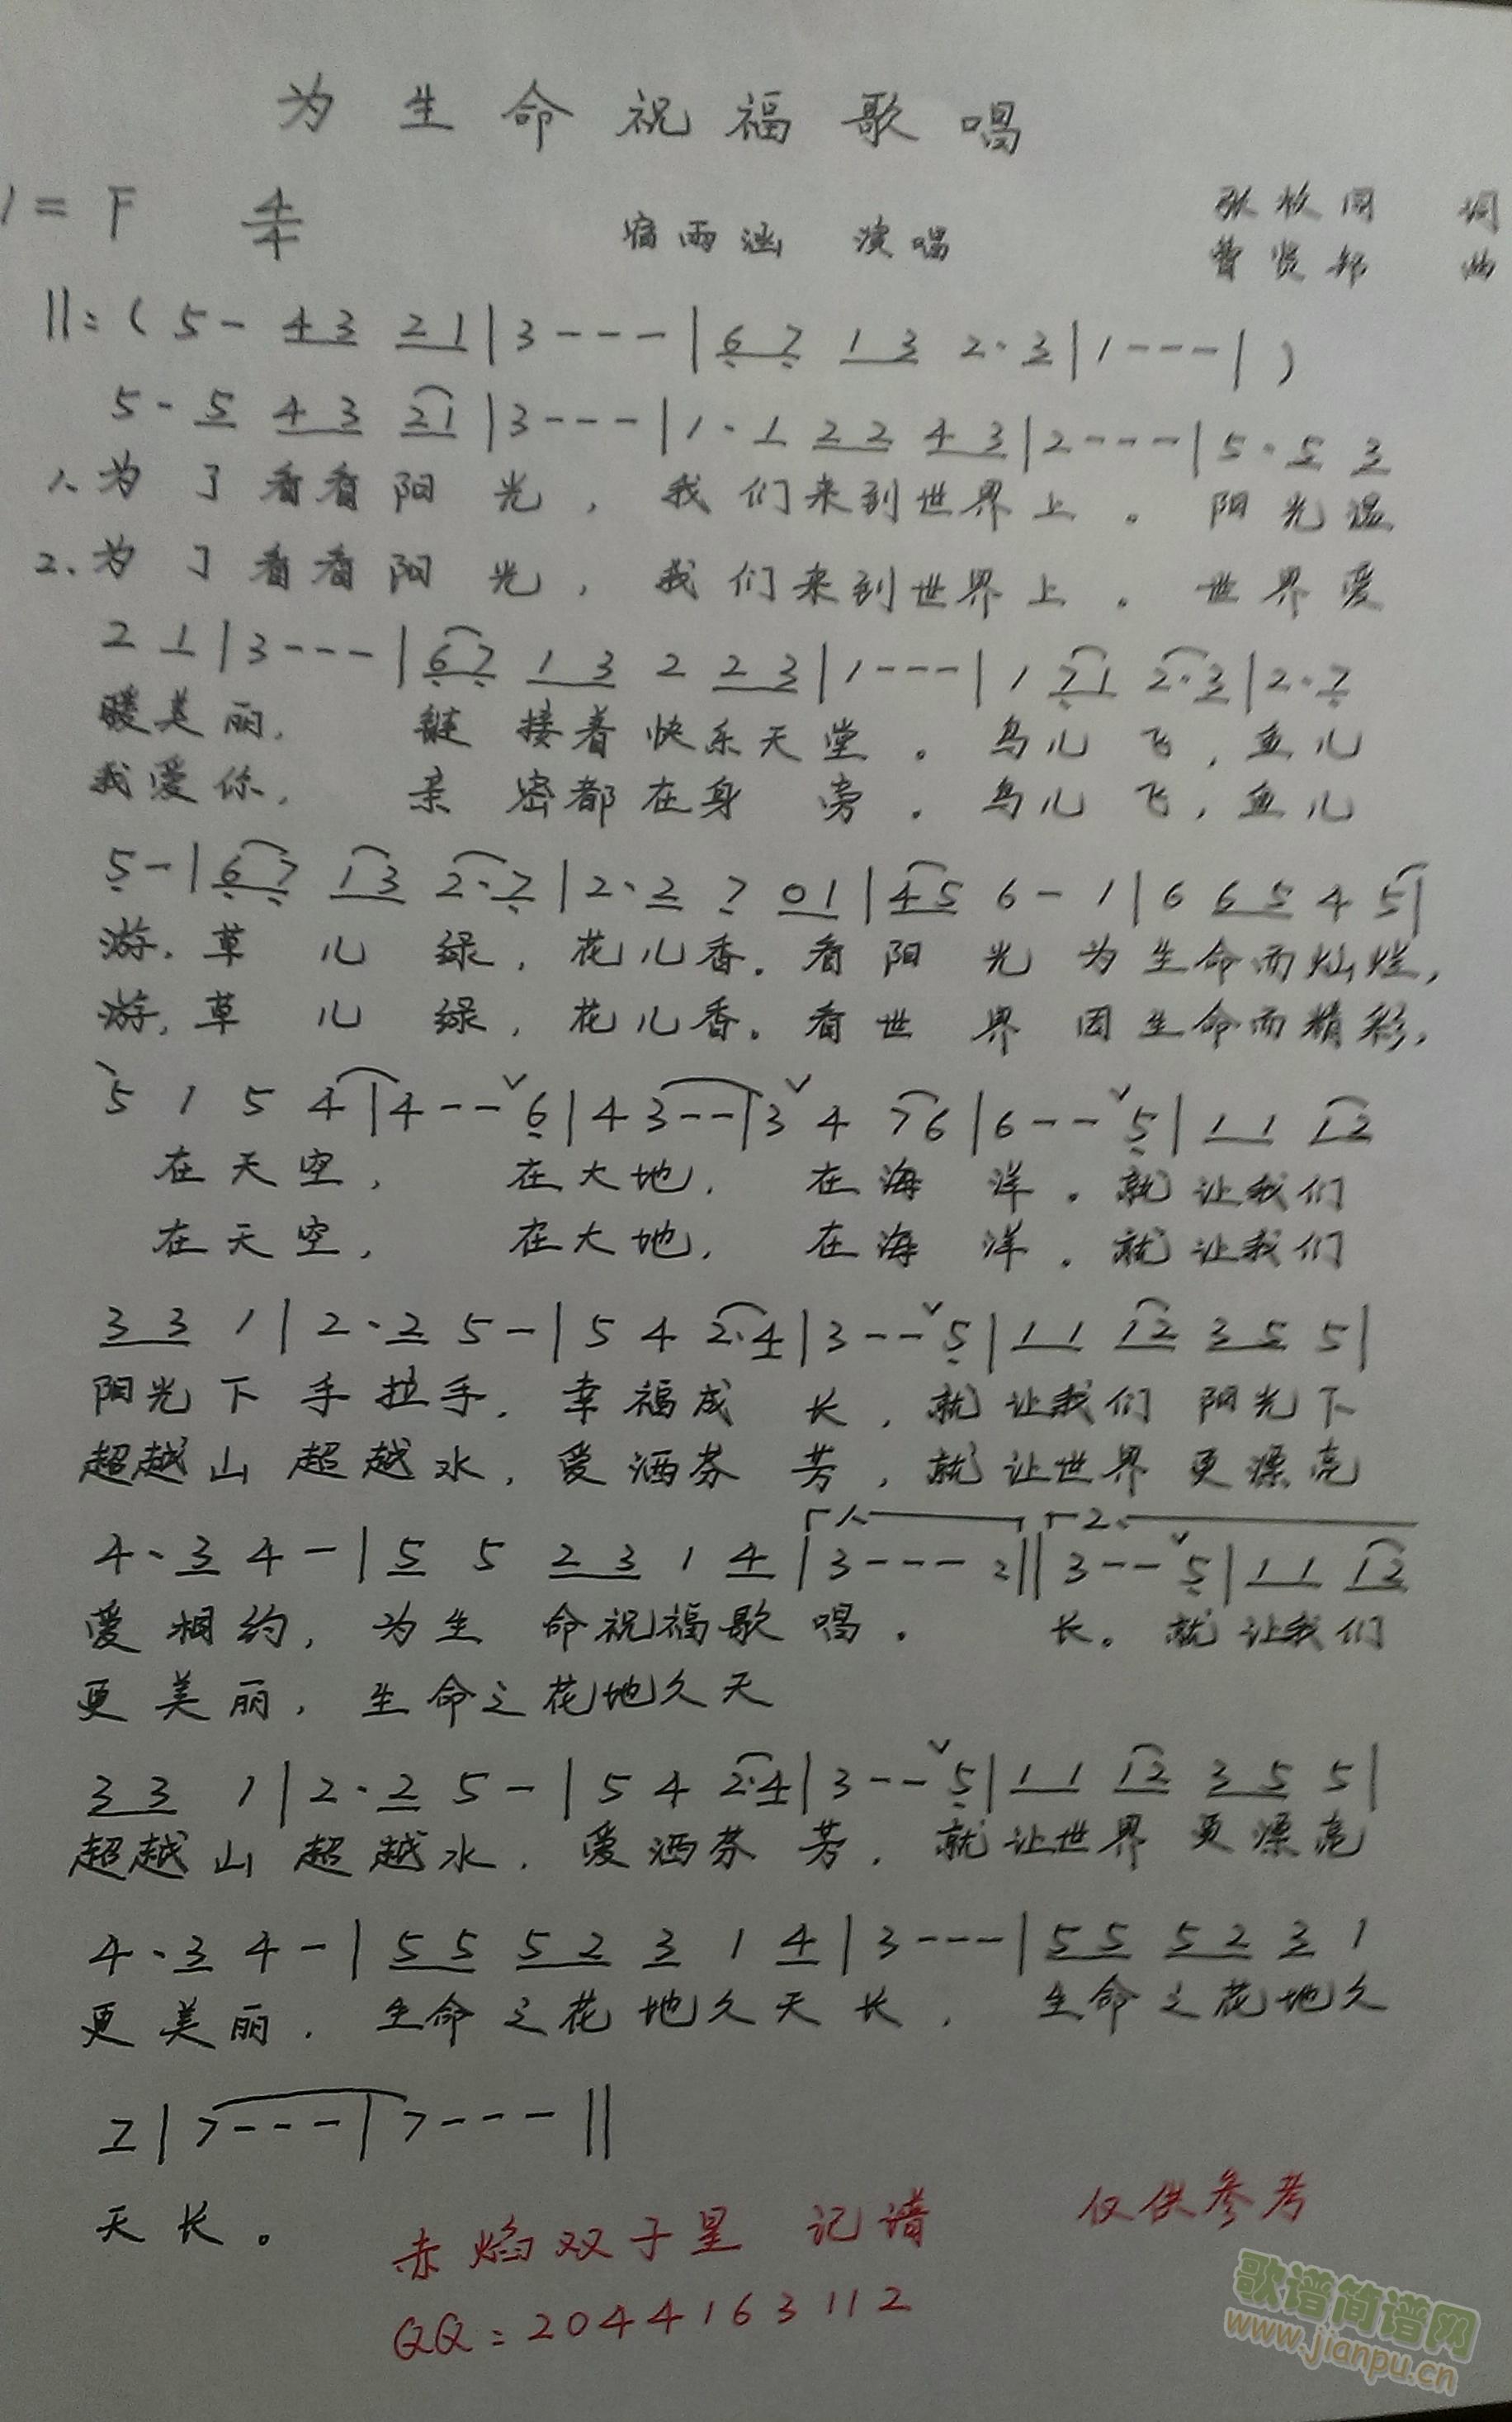 为生命祝福歌唱
1=F 4/4 宿雨涵 演唱 张牧同 词
曹贤邦 曲
‖:( 5 - 4 3 2 1 | 3 - - - | 6 7 1 3 2 · 3 | 1 - - - | )
5 - 5 4 3 2 1 | 3 - - - | 1 · 1 2 2 4 3 | 2 - - - | 5 · 5 3
1、为了看看阳光，我们来到世界上。阳光温
2、为了看看阳光，我们来到世界上。世界爱
2 1 | 3 - - - | 6 7 1 3 2 2 3 | 1 - - - | 1 7 1 2 · 3 | 2 · 7
暖美丽，链接着快乐天堂。鸟儿飞，鱼儿
我爱你，亲密都在身旁。鸟儿飞，鱼儿
5 - | 6 7 1 3 2 · 7 | 2 · 2 7 0 1 | 4 5 6 - 1 | 6 6 5 4 5 |
游，草儿绿，花儿香。看阳光为生命而灿烂，
游，草儿绿，花儿香。看世界因生命而精彩，
5 1 5 4 | 4 - - ˇ 6 | 4 3 - - | 3 ˇ 4 7 6 | 6 - - ˇ 5 | 1 1 1 2
在天空，在大地，在海洋。就让我们
在天空，在大地，在海洋。就让我们
3 3 1 | 2 · 2 5 - | 5 4 2 · 4 | 3 - - ˇ 5 | 1 1 1 2 3 5 5 |
阳光下手拉手，幸福成长，就让我们阳光下
超越山超越水，爱洒芬芳，就让世界更漂亮
1、 2、
4 · 3 4 - | 5 5 2 3 1 4 | 3 - - - :‖ 3 - - ˇ 5 | 1 1 1 2
爱相约，为生命祝福歌唱。长。就让我们
更美丽，生命之花地久天
3 3 1 | 2 · 2 5 - | 5 4 2 · 4 | 3 - - ˇ 5 | 1 1 1 2 3 5 5 |
超越山超越水，爱洒芬芳，就让世界更漂亮
4 · 3 4 - | 5 5 5 2 3 1 4 | 3 - - - | 5 5 5 2 3 1
更美丽，生命之花地久天长，生命之花地久
2 | 7 - - - | 7 - - - ‖
天长。
赤焰双子星 记谱 仅供参考
QQ:2044163112
歌谱简谱网
www.jianpu.cn